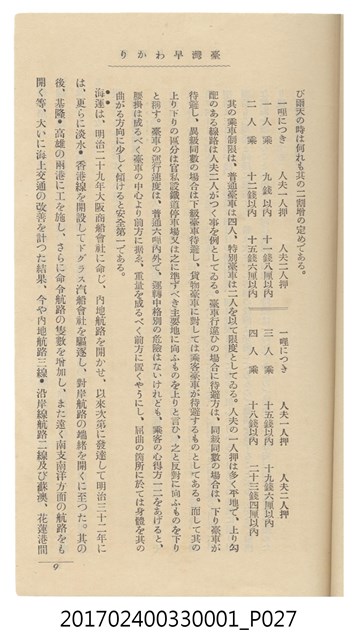 臺灣早わかり
び雨天の時は何れも其の二割增の定めである。
一哩につき　人夫一人押　人夫二人押
一人乘　九錢以內　十一錢八厘以內
二人乘　十二錢以內　十五錢六厘以內
一哩につき　人夫一人押　人夫二人押
三人乘　十五錢以內　十九錢六厘以內
四人乘　十八錢以內　二十三錢四厘以內
其の乘車制限は、普通臺車は四人、特別臺車は二人を以て限度としてゐる。人夫の一人押は多く平地で、上り勾
配のある線路は人夫二人がつく事を例としてゐる。臺車行違ひの場合に待避方は、同級同數の場合は、下り臺車が
待避し、異級同數の場合は下級臺車待避し、貨物臺車に對しては乘客臺車が待避するものとしてある。而して其の
上り下りの區分は官私設鐵道停車場又は之に準ずべき主要地に向ふものを上りと言ひ、之と反對に向ふものを下り
と稱す。臺車の運行速度は、普通六哩內外で、運轉中格別の危險はないけれども、乘客の心得方一二をあげると、
腰掛は成るべく臺車の中心より前方に据ゑ、重量を成るべく前方に置くやうにし、屈曲の箇所に於ては身體を其の
曲がる方向に少しく傾けると安全第一である。
海運は、明治二十九年大阪商船會社に命じ、內地航路を開かせ、以來次第に發達して明治三十二年に
は、更らに淡水・香港線を開設してドグラス汽船會社を驅逐し、對岸航路の端緖を開くに至つた。其の
後、基隆・高雄の兩港に工を施し、さらに命令航路の隻數を增加し、また遠く南支南洋方面の航路をも
開く等、大いに海上交通の改善を計つた結果、今や內地航路三線・沿岸線航路二線及び蘇澳、花蓮港間
9
201702400330001_P027